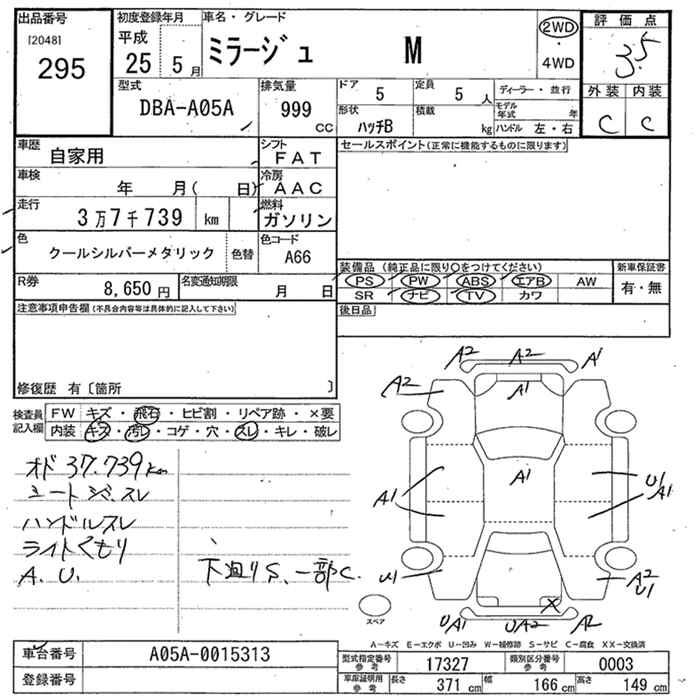 出品番号
[2048]
295
初度登録年月
平成
25 5月
車名・グレード
ミラージュ M
2WD
・
4WD
評価点
3.5
外装 内装
C C
型式
DBA-A05A
排気量
999 CC
ドア 5
定員 5 人
ディーラー・並行
形状 ハッチB
積載 kg
モデル年式 年
ハンドル 左・右
車歴
自家用
シフト
FAT
車検
年 月( 日)
冷房
AAC
走行
3万7千739 km
燃料
ガソリン
色
クールシルバーメタリック
色替
色コード
A66
R券
8,650円
名変通知期限
月 日
セールスポイント(正常に機能するものに限ります)
装備品 (純正品に限り○をつけてください)
新車保証書
PS PW ABS エアB AW
SR ナビ TV カワ
有・無
後日品
注意事項申告欄(不具合内容等は具体的に記入して下さい)
修復歴 有〔箇所 〕
検査員記入欄
FW キズ・飛石・ヒビ割・リペア跡・×要
内装 キズ・汚レ・コゲ・穴・スレ・キレ・破レ
オド 37.739km
シートシミ、スレ
ハンドルスレ
ライトくもり
A.U.
下廻りS、一部C.
A2 A2 A1
A2 A1
A1
A1 U1 A1
U1 A2 U1
X
スペア
UA1 UA2 A2
A-キズ E-エクボ U-凹み W-補修跡 S-サビ C-腐食 XX-交換済
車台番号
A05A-0015313
登録番号
型式指定番号 参考
17327
類別区分番号 参考
0003
車庫証明用 参考
長さ 371 cm
幅 166 cm
高さ 149 cm